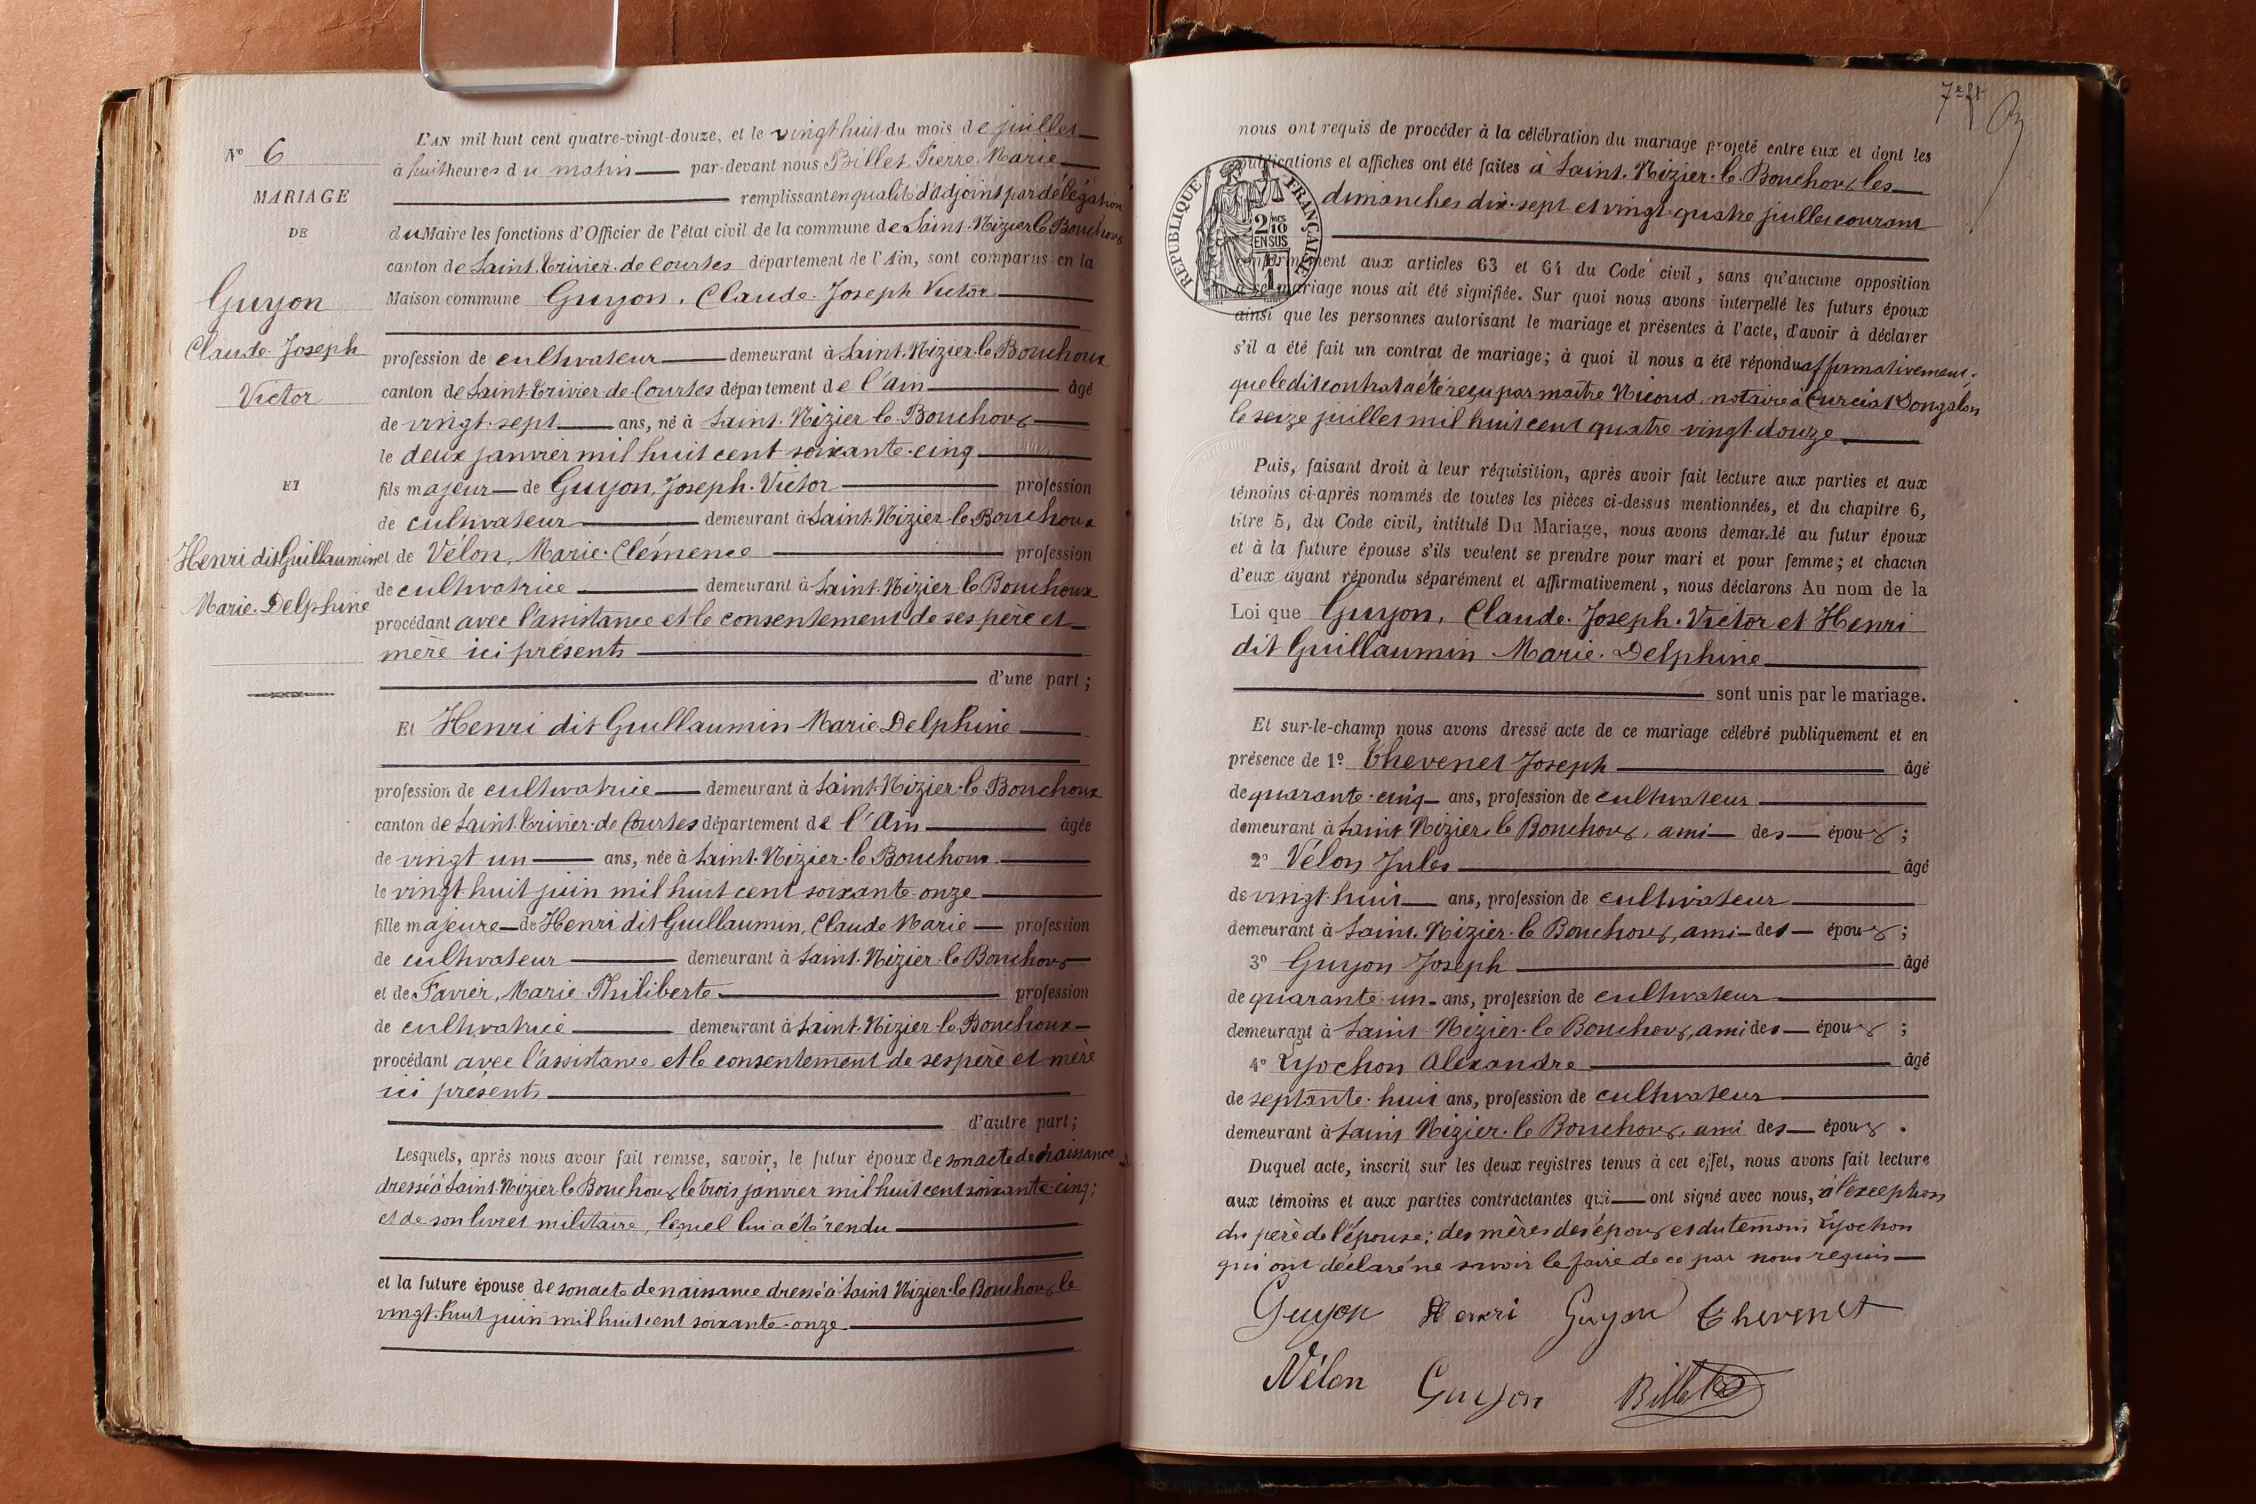 N° 6
MARIAGE
DE
Guyon
Claude Joseph
Victor
ET
Henri dit Guillaumin
Marie. Delphine
L'AN mil huit cent quatre-vingt-douze, et le vingt huit du mois de juillet
à huit heures du matin par-devant nous Billet Pierre Marie
remplissant en qualité d'adjoint par délégation
du Maire les fonctions d'Officier de l'état civil de la commune de Saint-Nizier le Bouchoux
canton de Saint. Trivier. de Courtes département de l'Ain, sont comparus en la
Maison commune Guyon, Claude. Joseph Victor
profession de cultivateur demeurant à Saint. Nizier. le Bouchoux
canton de Saint Trivier-de-Courtes département de l'Ain âgé
de vingt. sept ans, né à Saint. Nizier le Bouchoux
le deux janvier mil huit cent soixante. cinq
fils majeur de Guyon, Joseph. Victor profession
de cultivateur demeurant à Saint-Nizier-le Bouchoux
et de Vélon, Marie. Clémence profession
de cultivatrice demeurant à Saint. Nizier le Bouchoux
procédant avec l'assistance et le consentement de ses père et
mère ici présents
d'une part;
Et Henri dit Guillaumin Marie Delphine
profession de cultivatrice demeurant à Saint-Nizier-le Bouchoux
canton de Saint. Trivier. de Courtes département de l'Ain âgée
de vingt un ans, née à Saint. Nizier. le Bouchoux
le vingt huit juin mil huit cent soixante onze
fille majeure de Henri dit Guillaumin, Claude Marie profession
de cultivateur demeurant à Saint. Nizier. le Bouchoux
et de Favier, Marie Philiberte profession
de cultivatrice demeurant à Saint. Nizier-le Bouchoux
procédant avec l'assistance et le consentement de ses père et mère
ici présents
d'autre part;
Lesquels, après nous avoir fait remise, savoir, le futur époux de son acte de naissance
dressé à Saint. Nizier le Bouchoux le trois janvier mil huit cent soixante cinq;
et de son livret militaire, lequel lui a été rendu
et la future épouse de son acte de naissance dressé à Saint Nizier-le Bouchoux le
vingt. huit juin mil huit cent soixante-onze
7e ft
nous ont requis de procéder à la célébration du mariage projeté entre eux et dont les
publications et affiches ont été faites à Saint. Nizier. le. Bouchoux les
dimanches dix-sept et vingt-quatre juillet courant
RÉPUBLIQUE FRANÇAISE
2/10 EN SUS
conformément aux articles 63 et 64 du Code civil, sans qu'aucune opposition
à ce mariage nous ait été signifiée. Sur quoi nous avons interpellé les futurs époux
ainsi que les personnes autorisant le mariage et présentes à l'acte, d'avoir à déclarer
s'il a été fait un contrat de mariage; à quoi il nous a été répondu affirmativement.
que le dit contrat a été reçu par maître Nicoud, notaire à Curciat Dongalon
le seize juillet mil huit cent quatre vingt douze
Puis, faisant droit à leur réquisition, après avoir fait lecture aux parties et aux
témoins ci-après nommés de toutes les pièces ci-dessus mentionnées, et du chapitre 6,
titre 5, du Code civil, intitulé Du Mariage, nous avons demandé au futur époux
et à la future épouse s'ils veulent se prendre pour mari et pour femme; et chacun
d'eux ayant répondu séparément et affirmativement, nous déclarons Au nom de la
Loi que Guyon, Claude. Joseph. Victor et Henri
dit Guillaumin Marie. Delphine
sont unis par le mariage.
Et sur-le-champ nous avons dressé acte de ce mariage célébré publiquement et en
présence de 1° Thevenet Joseph âgé
de quarante. cinq ans, profession de cultivateur
demeurant à Saint Nizier le Bouchoux, ami des époux;
2° Vélon Jules âgé
de vingt. huit ans, profession de cultivateur
demeurant à Saint. Nizier. le Bouchoux, ami des époux;
3° Guyon Joseph âgé
de quarante un ans, profession de cultivateur
demeurant à Saint Nizier. le Bouchoux, ami des époux;
4° Lyochon Alexandre âgé
de septante. huit ans, profession de cultivateur
demeurant à Saint Nizier. le Bouchoux, ami des époux.
Duquel acte, inscrit sur les deux registres tenus à cet effet, nous avons fait lecture
aux témoins et aux parties contractantes qui ont signé avec nous, à l'exception
du père de l'épouse; des mères des époux et du témoin Lyochon
qui ont déclaré ne savoir le faire de ce par nous requis
Guyon Henri Guyon Thevenet
Vélon Guyon Billet